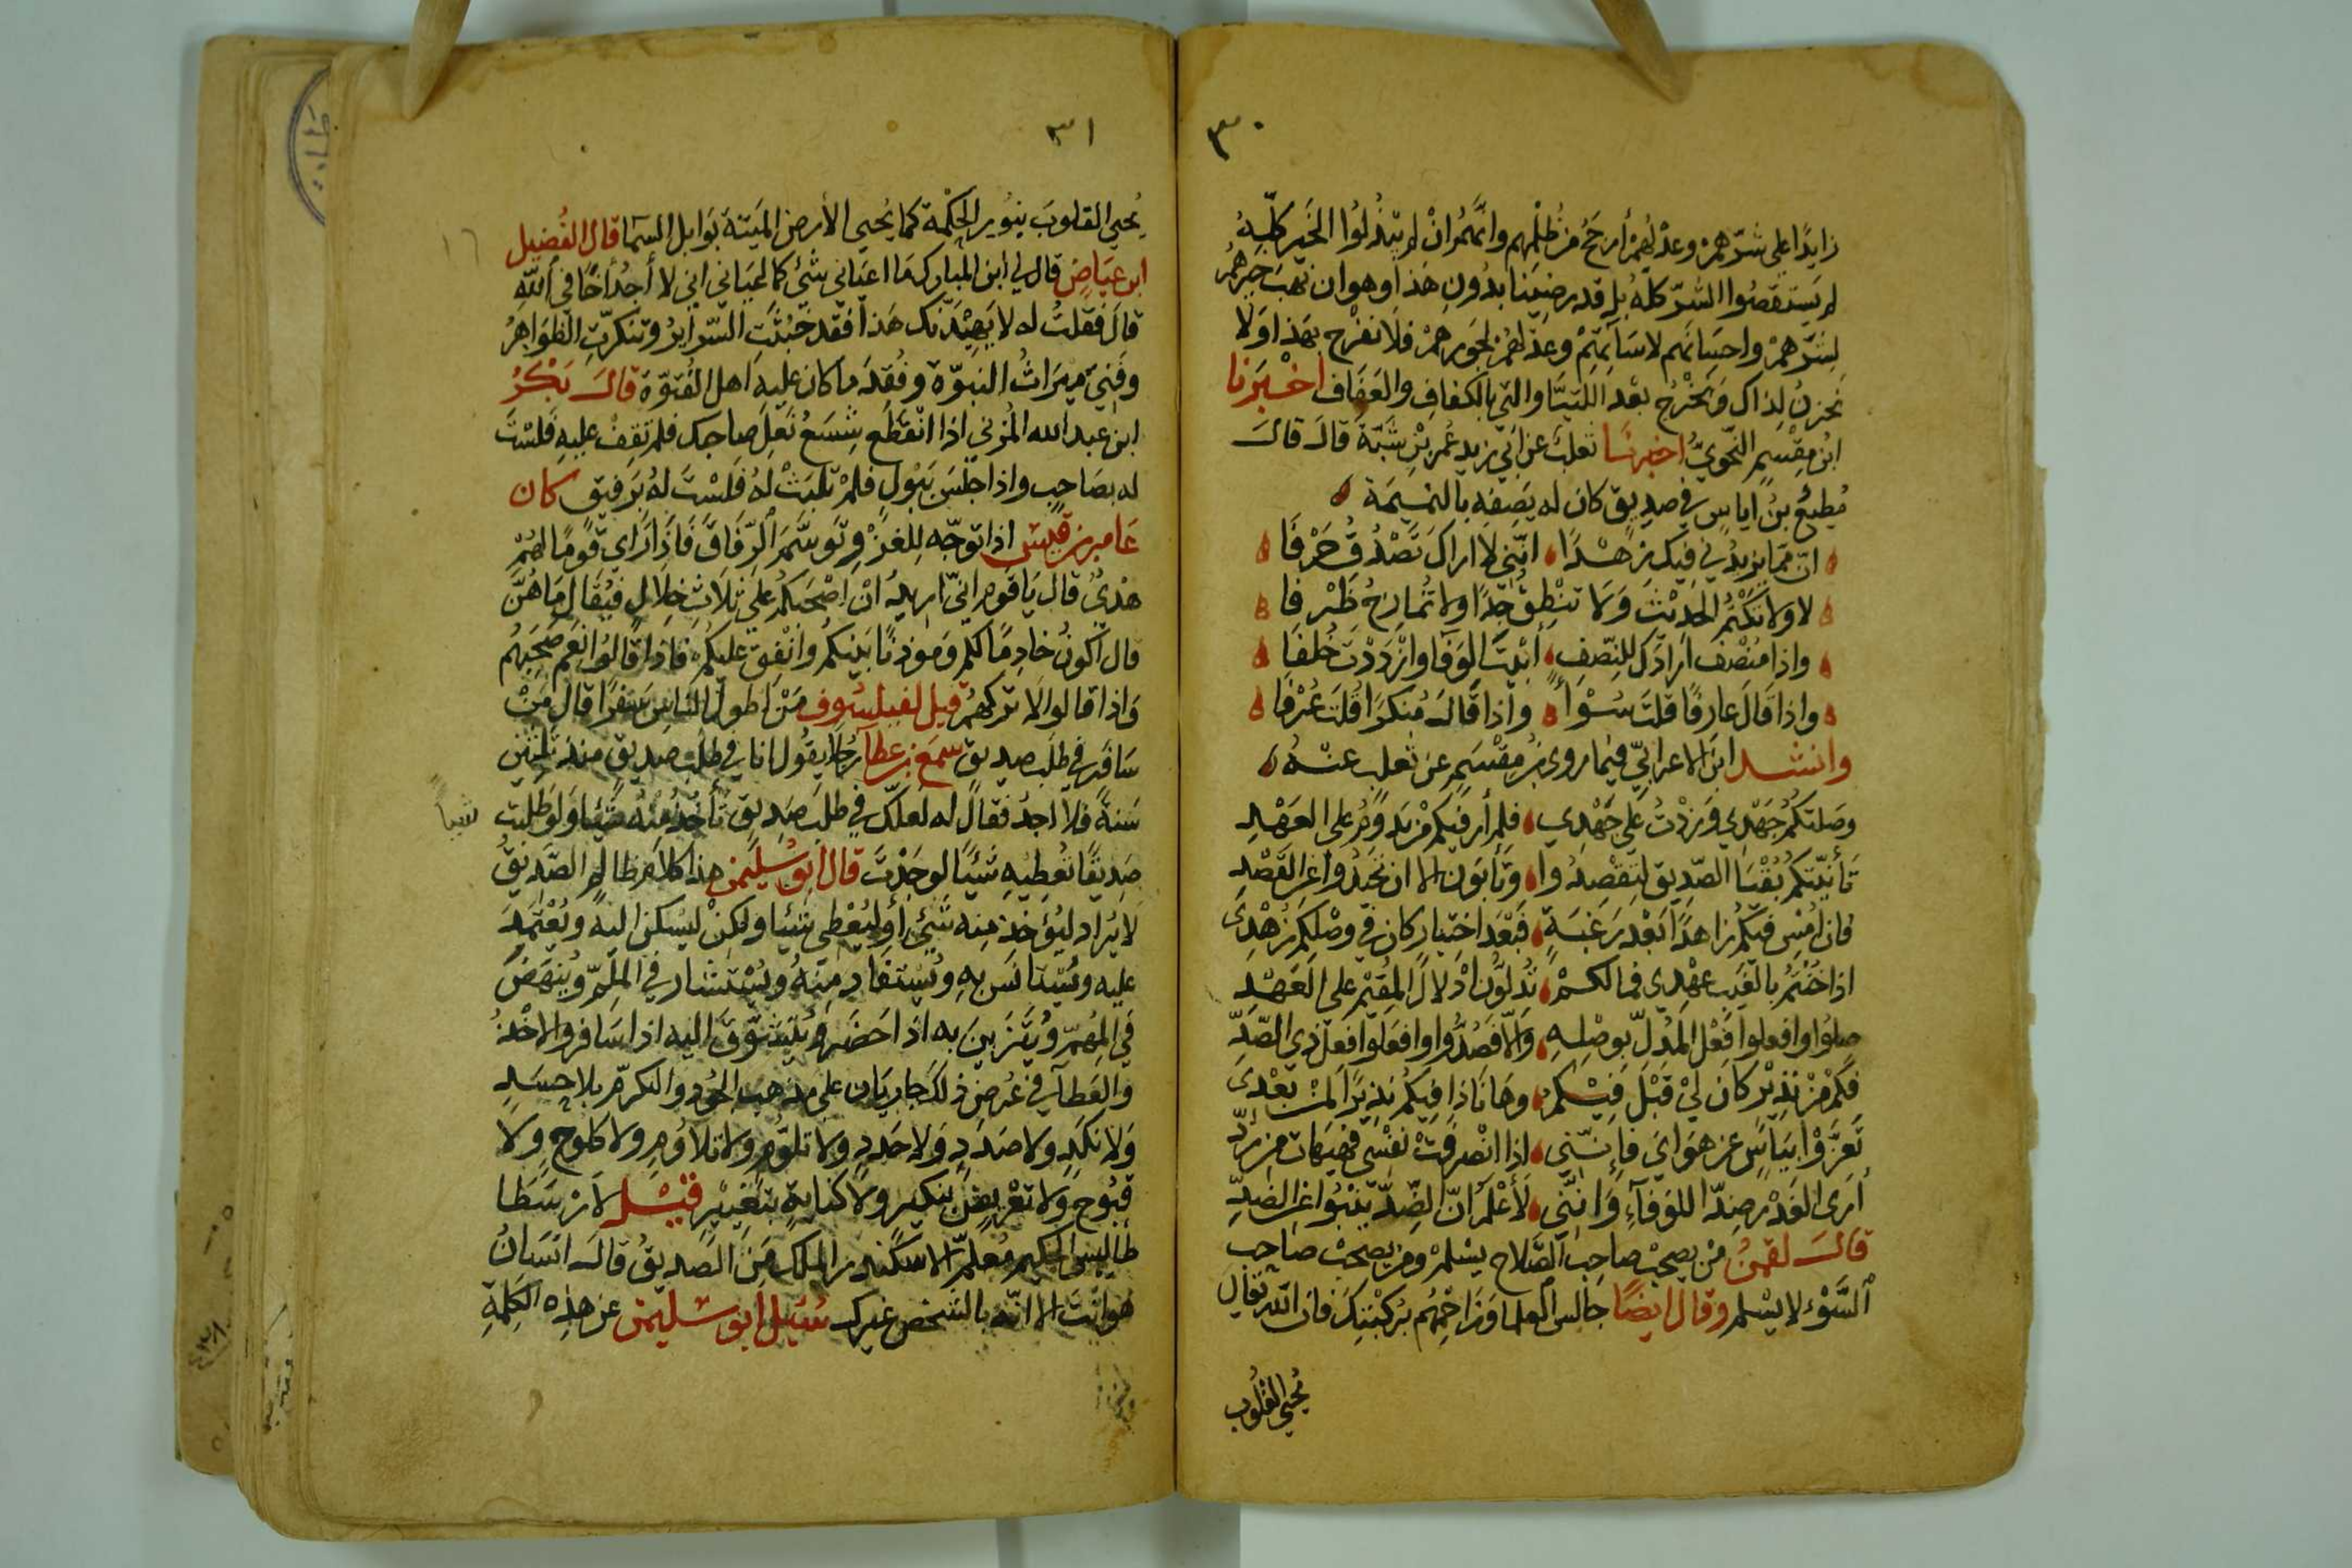 ٣٠
زايدًا على شرّهمْ وعدْلهُمْ أرجَحُ مِنْ ظُلْمِهم وانَّهمُ انْ لم يبْذُلُوا الخَيْر كلّهُ
لم يَستَقصُوا الشرّ كلّهُ بل قد رضِيَنا بدُونِ هَذا وهوان نهبَ خيرهُمْ
لِشَرّهمْ واحسَانَهم لاسَآئتِهِمْ وعَدْلهُمْ لجَورهِمْ فلَا نفرْح بهَذا وَلا
نحزن لِذاك وَنخْرُج بعْد اللتيَّا والتي بالكفاف والعَفَاف اخْبَرَنا
ابنُ مِقْسَمٍ النّحويُّ اخبرنَا ثعلبُ عن ابي زيدٍ عُمَر بنْ شَبَّةَ قالَ قالَ
مُطِيعُ بنُ اياسٍ في صديقٍ كان له يَصِفه بالنميمَة
انّ ممّا يزيدُني فيك زهْدًا انّني لا اراكَ تَصْدُقُ حَرْفَا
لا ولا تَكْتُمُ الحديْثَ وَلا تنْطِقُ جِدًّا ولا تُمازحُ ظَرْفا
واذا مُنْصِفٌ ارادَك للنّصفِ ابَيْتَ الوَفَا وازْدَدْتَ خُلفَا
واذا قَالَ عارفًا قلتَ سُوْأً واذا قالَ مُنكرًا قُلتَ عُرْفَا
وانشد ابن الاعرابيّ فيما روى بْنُ مِقْسَمٍ عن ثعلبٍ عنْهُ
وصَلتكُمْ جَهْدِي وَزدْتُ عَلى جَهْدِي فلم أرَ فيكم مَنْ يَدومُ على العَهْدِ
تَأنّيتكمْ بُقْيَا الصّديق لتقصدُوا وتأبَوْن الا ان تحيدُوا عن القَصْدِ
فان اُمْسِ فيكُم زاهدًا بَعْد رَغبَةٍ فبَعْدَ اختيارٍ كان في وصْلكُم زُهْدِي
اذا خُنْتُم بالغَيبِ عهْدِي فمالكُمْ تُدلّونَ ادْلالَ المُقيْمِ على العَهْدِ
صِلُوا وافعلوا فِعْلَ المُدلّ بوصْلِهِ وَالّا فَصُدُّوا وافعَلوا فعلَ ذي الصّدِّ
فكمْ مْن نذيْرٍ كَان ليْ قَبْلَ فيْكُم وهَا نَاذا فيكُم نذيرًا لمنْ بَعْدي
تَعزَّوْا بيَآسٍ عن هوَايَ فَإنّني اذا انْصرفَتْ نفْسي فهيَهات من رَدِّ
أرَى الغَدْرَ ضِدًّا للوفآءِ وَانّني لَأعْلمُ انّ الضِّدَّ ينْبُوا عن الضدِّ
قالَ لقمنُ منْ يصحبْ صاحبَ الصَّلاح يسْلمْ ومن يصحبْ صاحب
السَّوْءِ لا يسْلم وقال ايضًا جالس العلما وَزاحِمْهُم برُكبْتيْكَ فان الله تعالى
يُحيي القُلُوب
٣١
يُحيي القلوبَ بنُور الحكْمَة كما يُحيي الأرض المَيتةَ بوَابل السّما قال الفُضيل
ابن عيَاضٍ قال لي ابن المبارك مَا اعيَاني شيْئٌ كما اعيَاني اني لا أجدُ أخًا في الله
قالَ فقلتُ له لا يَهِيْدَنّك هَذا فقد خَبُثَتِ السّرايرُ وتنكرّتِ الظوَاهِرُ
وفَنيَ ميْرَاثُ النبوّة وفُقِدَ ما كان عليه اهل الفُتوّة قالَ بَكْرُ
ابن عبد الله المُزني اذا انقطَع شِسعُ نَعلِ صاحبك فلم تقِفْ عليهِ فلسْتَ
له بصَاحبٍ واذا جلسَ يَبُول فلمْ تلبَثْ لهُ فَلسْتَ لهُ برَفيق كان
عَامر بن قيسٍ اذا توجّه للغَزْوِ توسَّمَ الرّفَاقَ فَاذا رَأى قومًا لهُمْ
هَدْيٌ قال يَا قَوم انّي اريدُ انْ اصْحَبكُمْ على ثلاثِ خلالٍ فيُقال مَا هُنَّ
قال أكونُ خادمًا لكم وَمؤذنًا بَيْنكُم وانْفق عليكُمْ فاذا قالوُا نعَم صَحِبَهُم
وَاذا قالوا لا تركهُم قيل لفيلسُوف مَنْ اطول النّاسِ سَفَرًا قال مَنْ
سَافَر في طلب صديق سَمعَ بن عطآ رجُلا يقُول انا في طلب صديقٍ منذ ثلثين
سَنةً فلا اجدُ فقال له لعلّك في طلبِ صَديقٍ تأخُذ منهُ شيًا وَلو طلبت
شياً
صَديقًا تُعطِيهِ شَيئًا لوجَدْتَ قال ابو سُليمَن هذا كلام ظالم الصّدِيقُ
لا يُراد ليُؤخذ منه شَيْئ أو ليُعْطى شَيْئا ولكنْ ليُسكنَ اليه ويُعْتَمَدَ
عليه وَيُسْتانَس بهِ وَيُسْتفَاد مِنهُ ويُسْتشار في المُلِمّ ويُنهَضَ
في المُهِمّ وَيُتَزَيَن به اذَا حَضَر وَيُتَشوّقَ اليه اذا سَافرَ والاخْذُ
وَالعَطآ في عُرض ذلك جَاريَان على مذهب الجُود والتكرّم بلا حسَدٍ
وَلا نكَدٍ ولا صَدَدٍ وَلا حَددٍ ولا تلوّمٍ ولا تلاوُمٍ ولا كلوحٍ ولَا
قبُوحٍ وَلا تعْريضٍ بنكيرٍ ولا كنايةٍ بتَغييْرٍ قيْل لارسْطا
طَاليس الحكيم مُعَلّمِ الاسكندر الملك مَنِ الصَديقُ قالَ انسَانٌ
هُو انتَ الا انّه بالشَخْص غيرك سُئيل أبو سُليمن عن هذِه الكَلِمَةِ
١٦